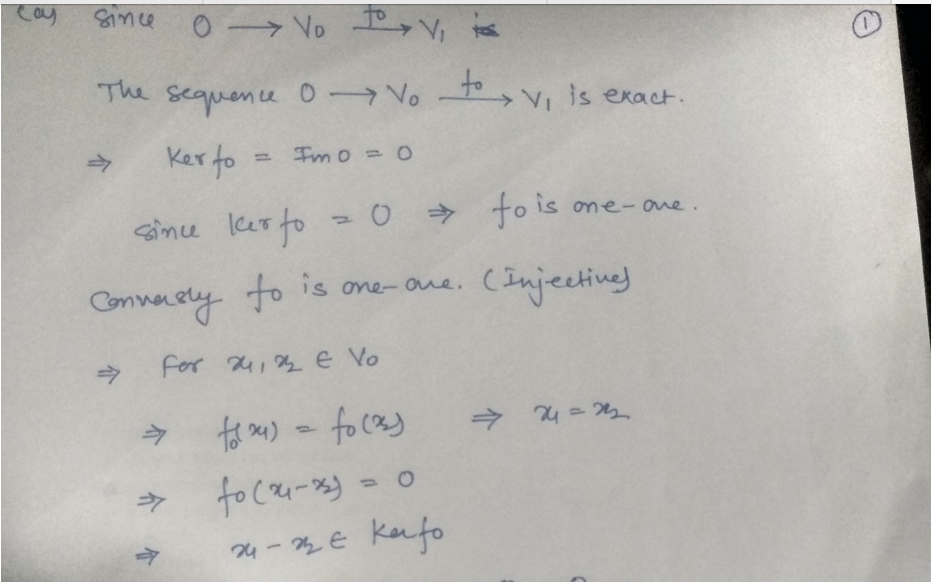 (a) Since 0 → V₀ —f₀→ V₁ is ①
The sequence 0 → V₀ —f₀→ V₁ is exact.
⇒ Ker f₀ = Im 0 = 0
Since ker f₀ = 0 ⇒ f₀ is one-one.
Conversly f₀ is one-one. (Injective)
⇒ For x₁, x₂ ∈ V₀
⇒ f₀(x₁) = f₀(x₂) ⇒ x₁ = x₂
⇒ f₀(x₁-x₂) = 0
⇒ x₁ - x₂ ∈ Ker f₀